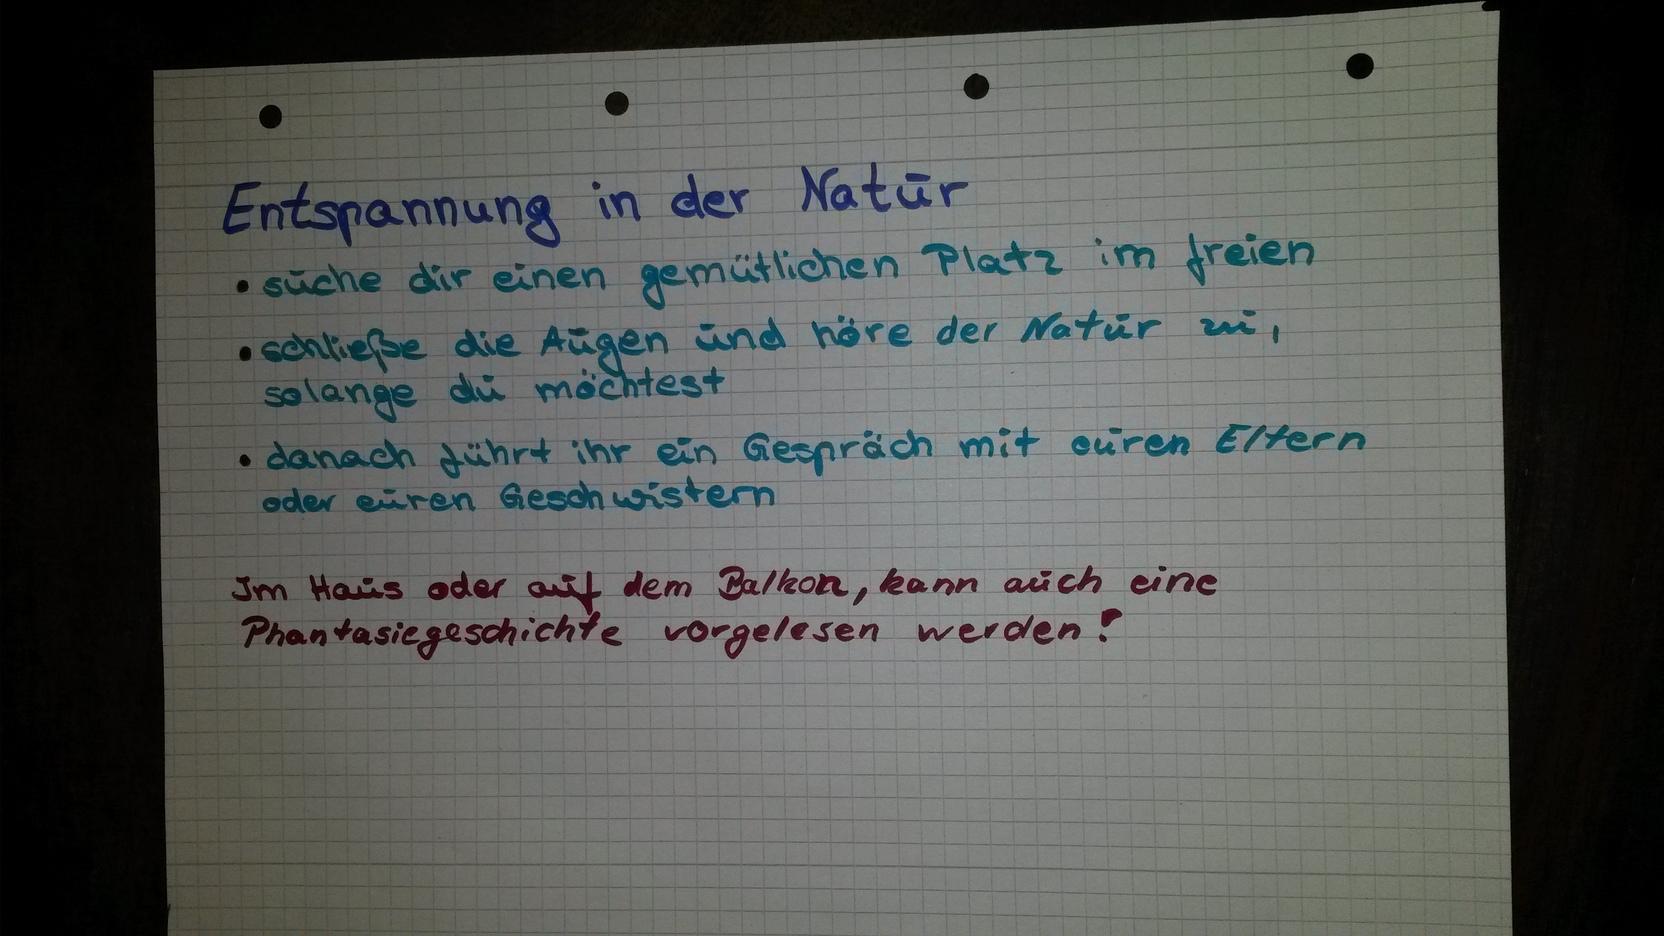 Entspannung in der Natur
• suche dir einen gemütlichen Platz im freien
• schließe die Augen und höre der Natur zu,
solange du möchtest
• danach führt ihr ein Gespräch mit euren Eltern
oder euren Geschwistern
Im Haus oder auf dem Balkon, kann auch eine
Phantasiegeschichte vorgelesen werden!